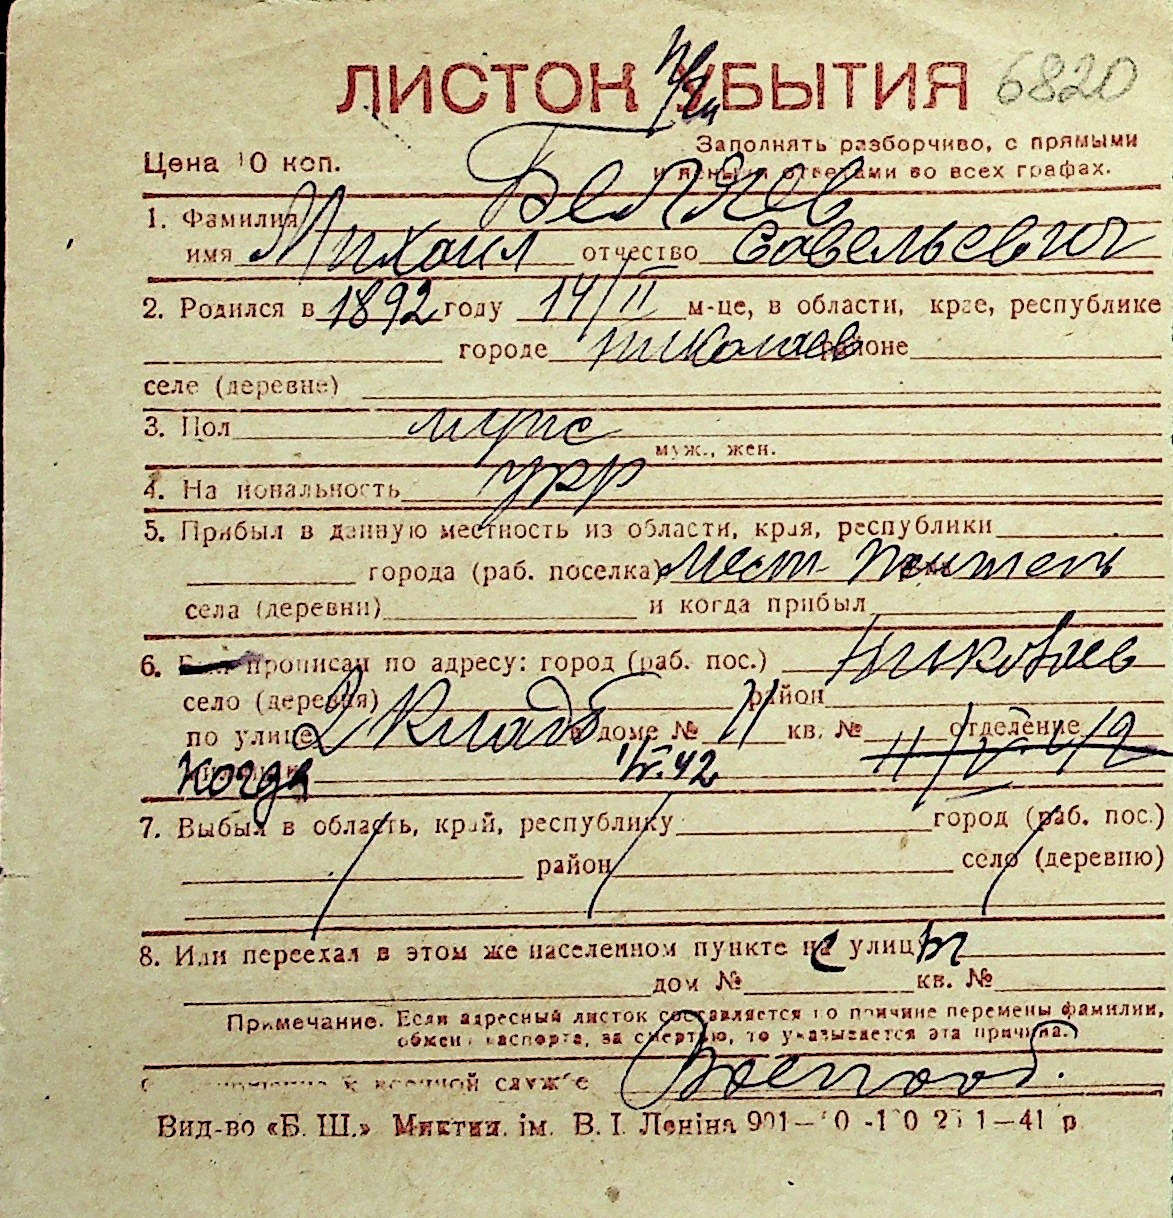 ЛИСТОК УБЫТИЯ 6820
Заполнять разборчиво, с прямыми
Цена 10 коп.
и ясными ответами во всех графах.
1. Фамилия Беляев
имя Михаил отчество Савельевич
2. Родился в 1892 году 14/II м-це, в области, крае, республике
городе Николаев районе
селе (деревне)
3. Пол муж
муж., жен.
4. Национальность укр
5. Прибыл в данную местность из области, края, республики
города (раб. поселка) мест житель
села (деревни) и когда прибыл
6. прописан по адресу: город (раб. пос.) Николаев
село (деревня) район
по улице 2 Кладб в доме № 11 кв. № отделение
Когда 1/V.42
7. Выбыл в область, край, республику город (раб. пос.)
район село (деревню)
8. Или переехал в этом же населенном пункте с улицы
дом № кв. №
Примечание. Если адресный листок составляется по причине перемены фамилии,
обмена паспорта, за смертью, то указывается эта причина.
Отношение к военной службе Военнооб.
Вид-во «Б. Ш.» Миктип. ім. В. І. Леніна